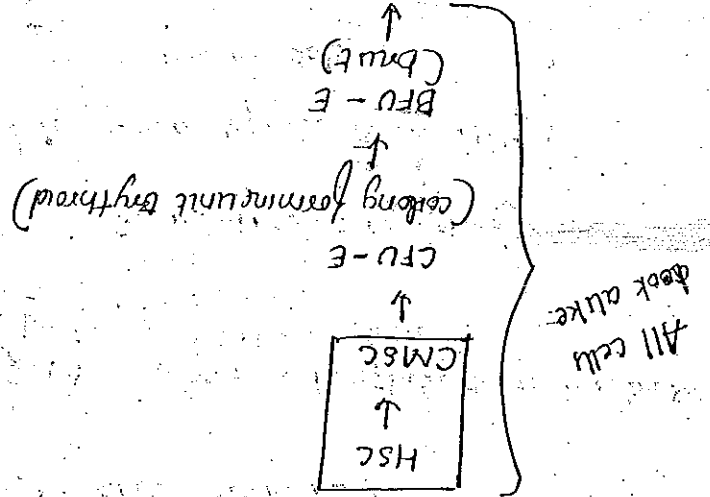 HSC
↓
CMSC
↓
CFU-E
(colony forming unit Erythroid)
↓
BFU-E
(burst)
↓
All cells
look alike